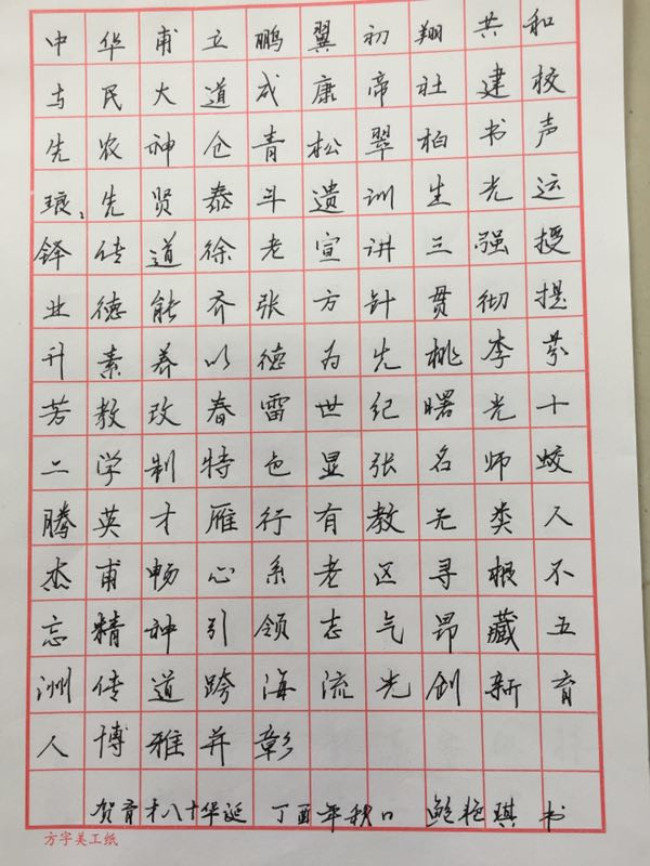 中华甫立鹏翼初翔共和
与民大道成康帝社建校
先农神仓青松翠柏书声
琅：先贤泰斗遗训生光运
铎传道徐老宣讲三强授
业德能齐张方针贯彻提
升素养以德为先桃李芬
芳教改春雷世纪曙光十
二学制特色显张名师蛟
腾英才雁行有教无类人
杰甫畅心系老区寻根不
忘精神引领志气昂藏五
洲传道跨海流光创新育
人博雅并彰
贺育才八十华延 丁酉年秋日 鲍艳琪 书
方字美工纸